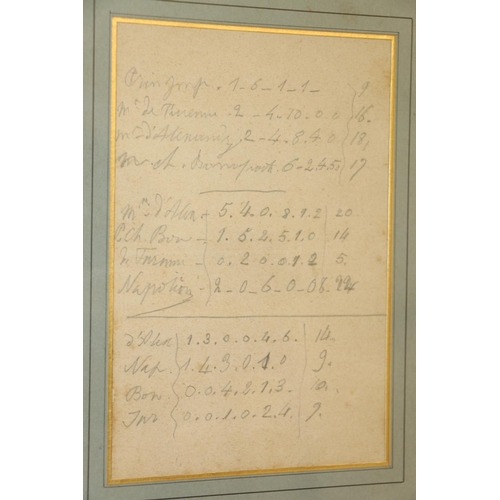 Prin Jos. 1-6-1-1- 9.
Mr de Turenne. 2-4-10.0.0 16.
2-4.8.4.0 18,
Bonaparte. 6-2.4.5, 17
Mm d'Alen 5.4.0.8.1.2 20
P. Ch. Bon - 1.5.2.5.1.0 14
de Turenne - 0.2.0.0.1.2 5.
Napoléon 2-0-6-0-0 24
d'Alen 1.3.0.0.4.6. 14.
Nap. 1.4.3.0.1.0 9.
Bon 0.0.4.2.1.3. 10.
Tur 0.0.1.0.2.4. 7.